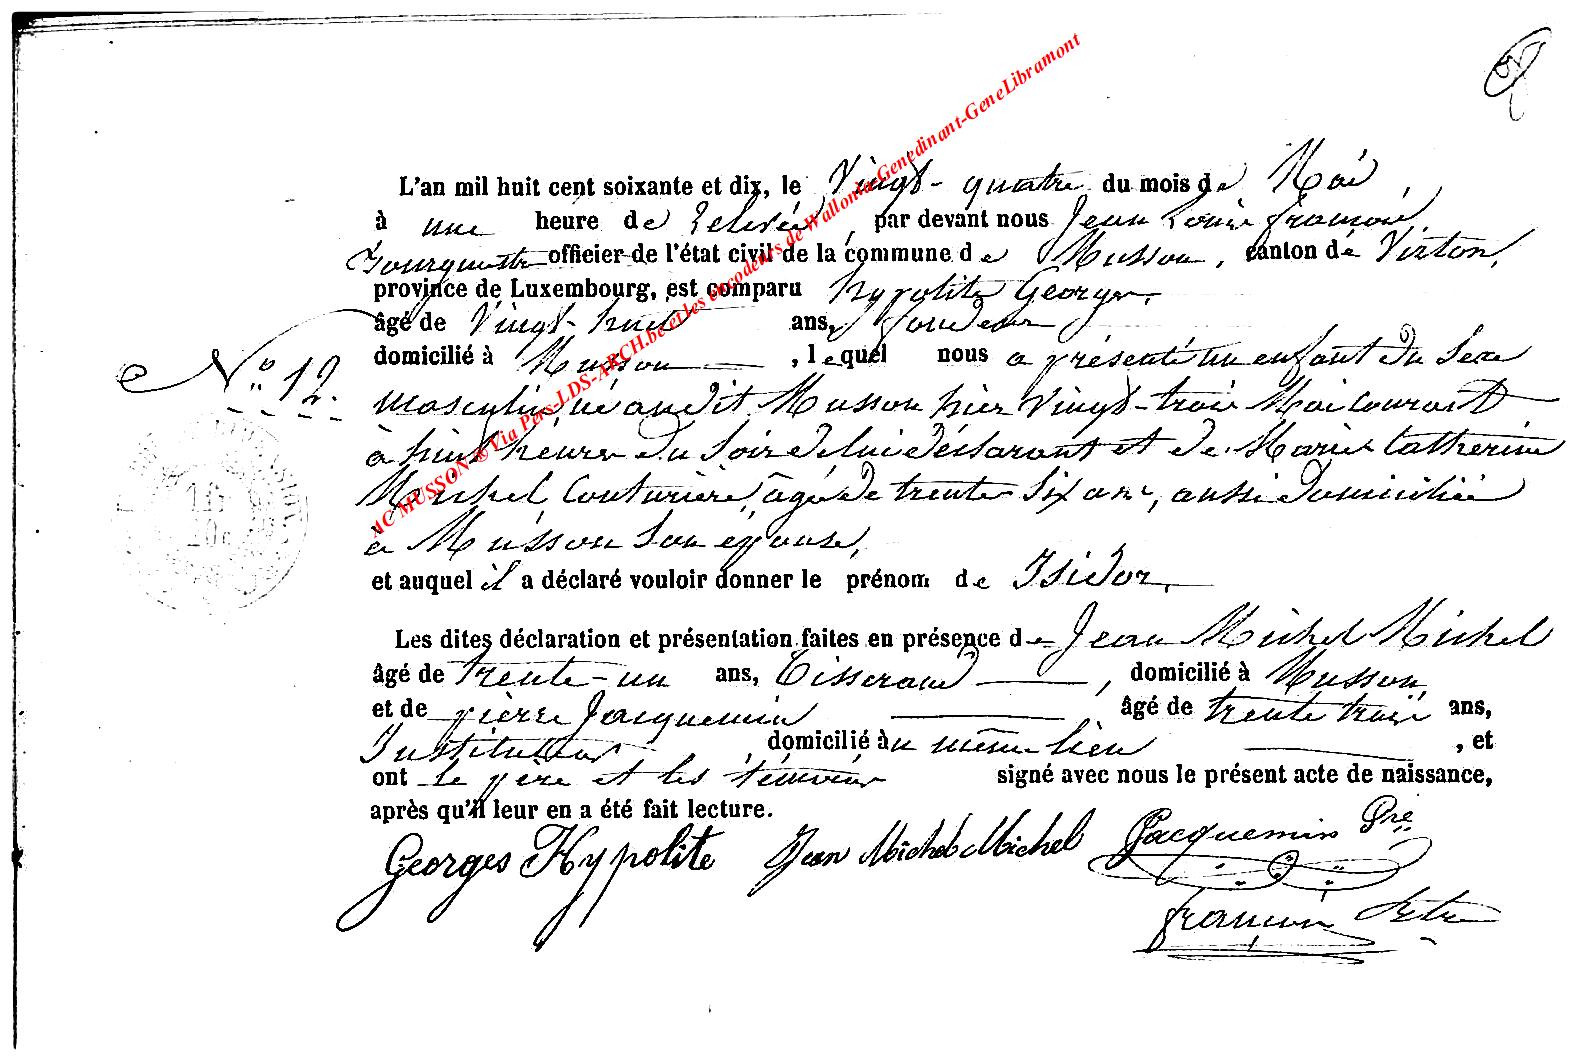 L'an mil huit cent soixante et dix, le Vingt-quatre du mois de Mai,
à une heure de relevée, par devant nous Jean Louis François,
Bourguestre officier de l'état civil de la commune de Musson, canton de Virton,
province de Luxembourg, est comparu hypolite Georges,
âgé de Vingt-huit ans,
domicilié à Musson, lequel nous a présenté un enfant du Sexe
N° 12.
masculin né au dit Musson hier Vingt-trois Mai courant
à huit heures du Soir de lui déclarant et de Marie Catherine
Michel Couturière, âgée de trente Six ans, aussi domiciliée
à Musson Son épouse,
et auquel il a déclaré vouloir donner le prénom de Isidor,
Les dites déclaration et présentation faites en présence de Jean Michel Michel
âgé de trente-un ans, Tisserand, domicilié à Musson,
et de pierre Jacquemin âgé de trente trois ans,
Instituteur, domicilié au même lieu, et
ont le père et les témoins signé avec nous le présent acte de naissance,
après qu'il leur en a été fait lecture.
Georges Hypolite Jean Michel Michel Jacquemin Pre
françois
AC MUSSON @Via Pers-LDS-ARCH.be et les encodeurs de Wallonia-Genedinant-GeneLibramont